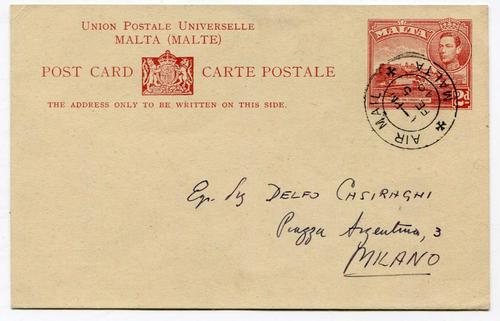 UNION POSTALE UNIVERSELLE
MALTA (MALTE)
POST CARD CARTE POSTALE
THE ADDRESS ONLY TO BE WRITTEN ON THIS SIDE.
MALTA
2d
AIR MAIL
MALTA
Egr. Sig DELFO CASIRAGHI
Piazza Argentina, 3
MILANO